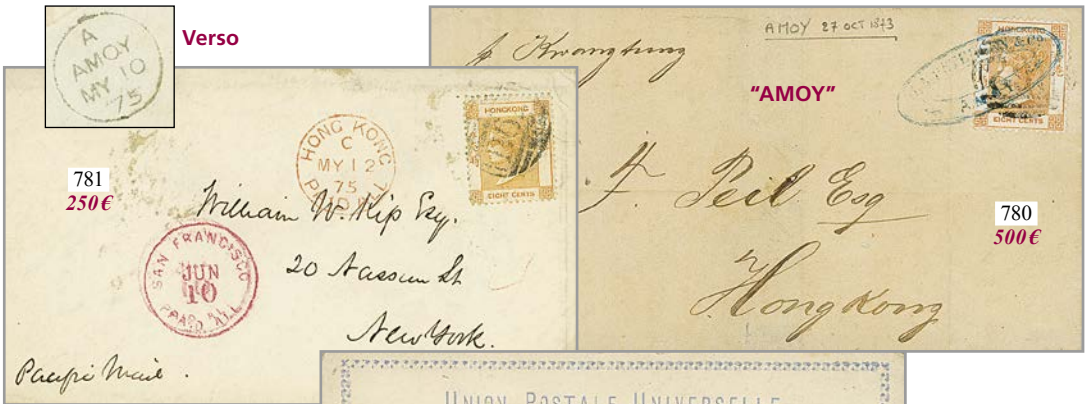 Verso
A
AMOY
MY 10
75
781
250€
HONG KONG
C
MY 12
75
HONGKONG
EIGHT CENTS
William W. Kip Esq.
20 Nassau St
New York.
SAN FRANCISCO
JUN
10
PAID ALL
Pacific Mail.
AMOY 27 OCT 1873
p Kwangtung
"AMOY"
HONGKONG
EIGHT CENTS
F. Peil Esq
Hong Kong
780
500€
UNION POSTALE UNIVERSELLE